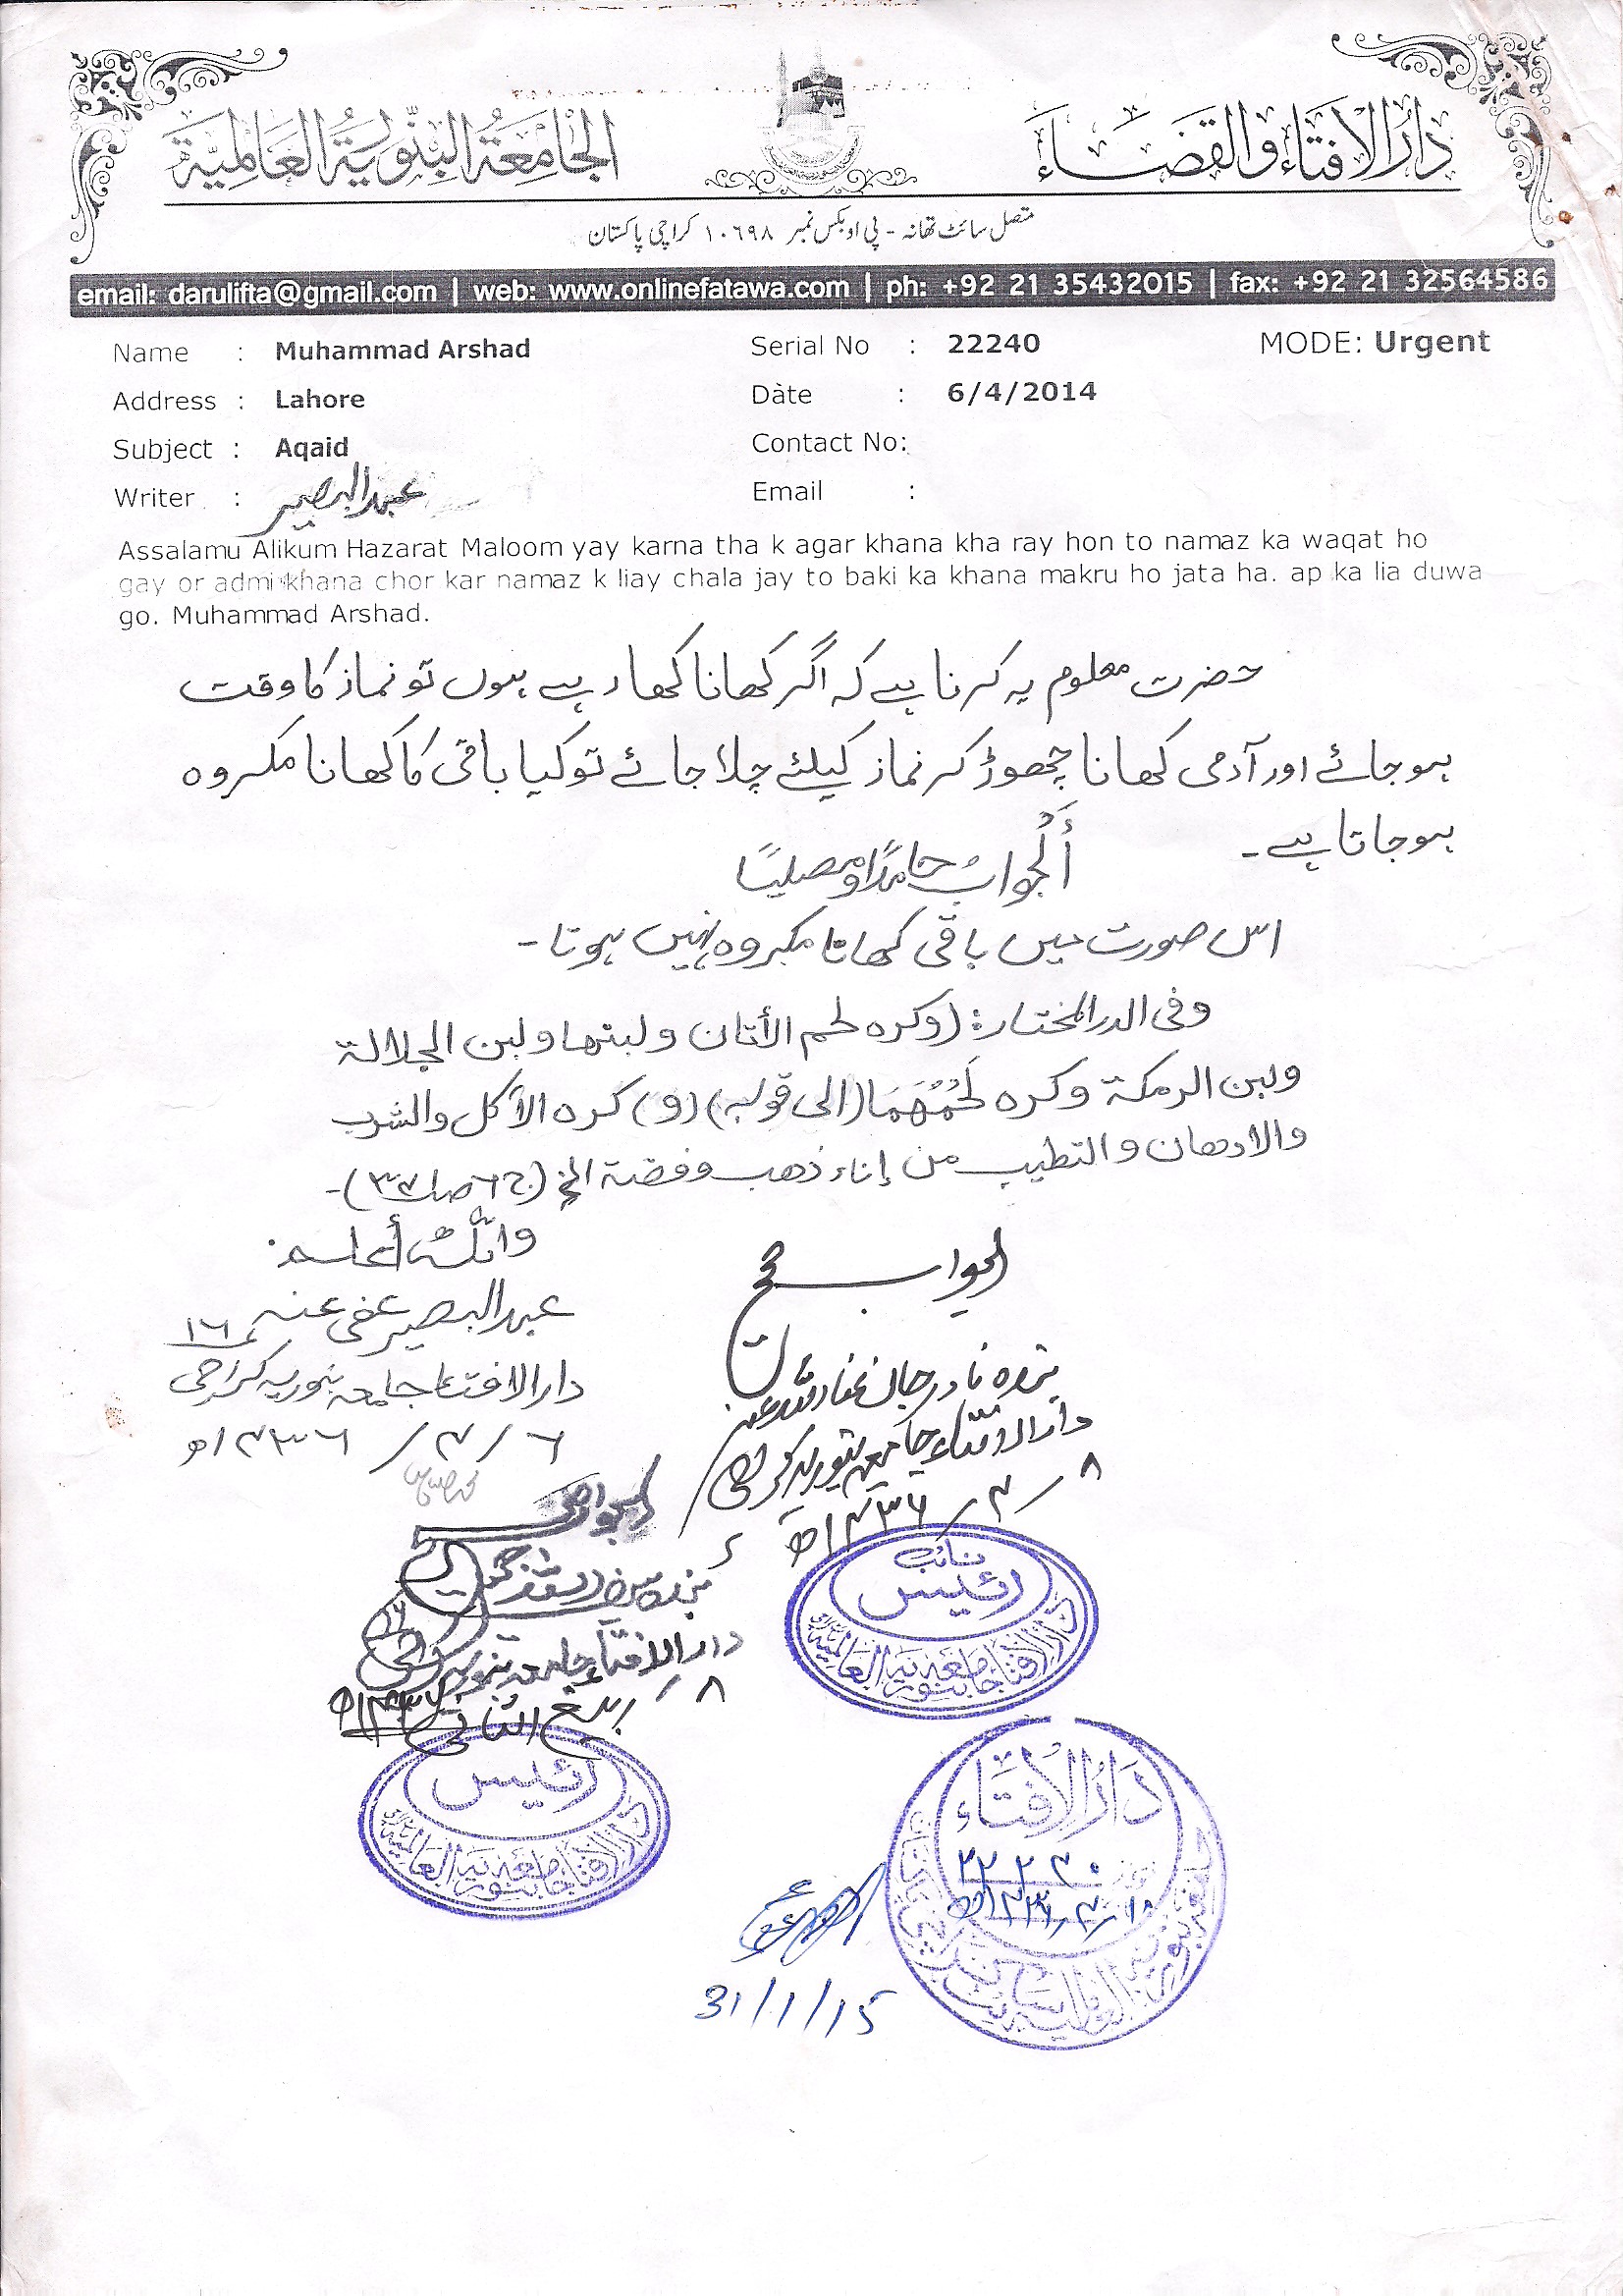 دارالافتاء والقضاء
الجامعة البنورية العالمية
متصل سائٹ تھانہ - پی او بکس نمبر ۱۰۶۹۸ کراچی پاکستان
email: darulifta@gmail.com | web: www.onlinefatawa.com | ph: +92 21 35432015 | fax: +92 21 32564586
Name : Muhammad Arshad Serial No : 22240 MODE: Urgent
Address : Lahore Date : 6/4/2014
Subject : Aqaid Contact No:
Writer : عبدالبصیر Email :
Assalamu Alikum Hazarat Maloom yay karna tha k agar khana kha ray hon to namaz ka waqat ho
gay or admi khana chor kar namaz k liay chala jay to baki ka khana makru ho jata ha. ap ka lia duwa
go. Muhammad Arshad.
حضرت معلوم یہ کرنا ہے کہ اگر کھانا کھا رہے ہوں تو نماز کا وقت
ہو جائے اور آدمی کھانا چھوڑ کر نماز کیلئے چلا جائے تو کیا باقی کا کھانا مکروہ
ہو جاتا ہے۔
أَلْجواب حامدًا ومصلیًا
اس صورت میں باقی کھانا مکروہ نہیں ہوتا۔
وفی الدر المختار: (وکره لحم الأتان ولبنها ولبن الجلالة
ولبن الرمكة وکره لَحْمُهُمَا (الی قوله) (و) کره الأکل والشرب
والادهان والتطیب من إناء ذهب وفضة الخ (ج٦ ص٣٤١)۔
واللہ أعلم
عبدالبصیر عفی عنہ
دارالافتاء جامعہ بنوریہ کراچی
٦/٤/١٤٣٦ھ
الجواب صحیح
بندہ نادر جان عفا اللہ عنہ
دارالافتاء جامعہ بنوریہ کراچی
٨/٤/١٤٣٦ھ
الجواب صحیح
دارالافتاء جامعہ بنوریہ
٨/ ربیع الثانی
نائب
رئیس
دارالافتاء جامعہ بنوریہ العالمیہ
رئیس
دارالافتاء جامعہ بنوریہ العالمیہ
دارالافتاء
٢٢٢٤٠
31/1/15